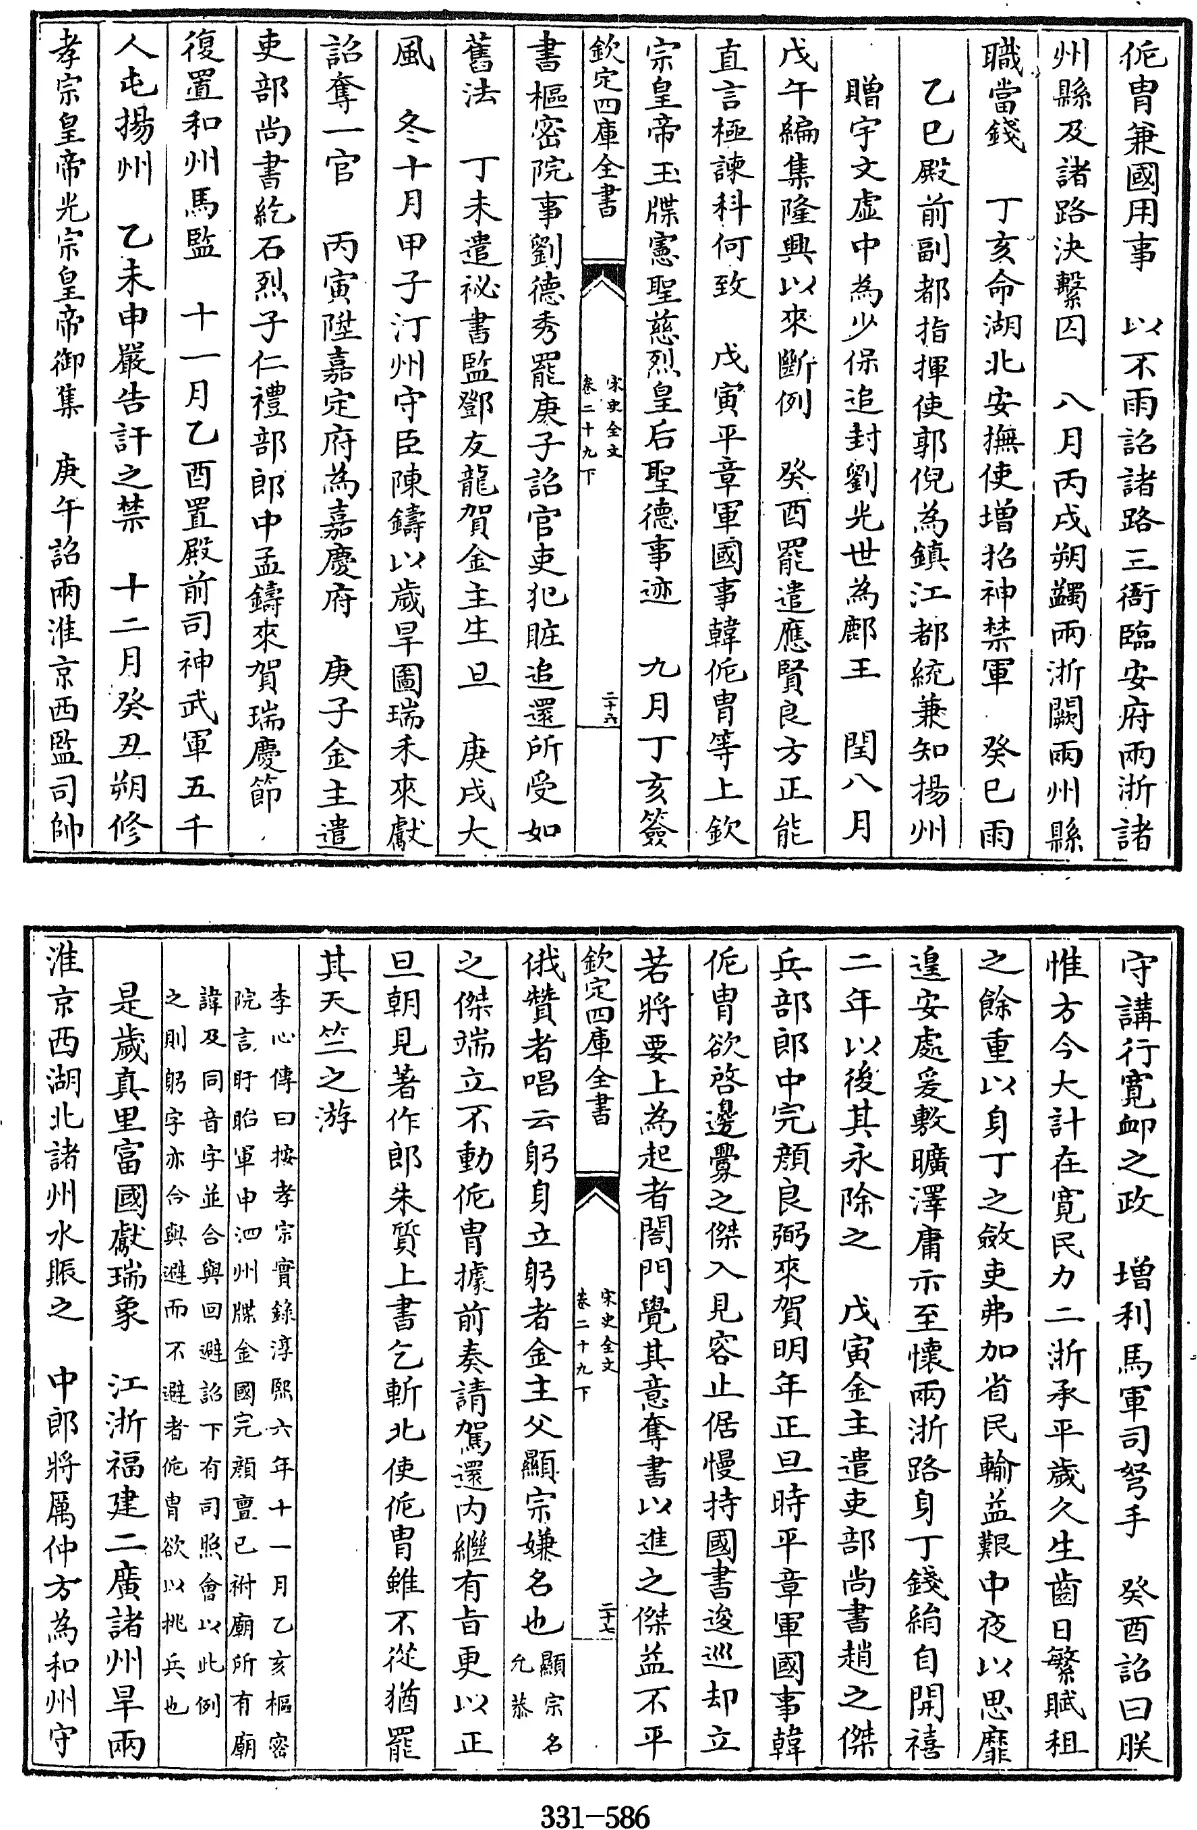 侂冑兼國用事　以不雨詔諸路三衙臨安府兩浙諸
州縣及諸路決繫囚　八月丙戌朔蠲兩浙闕雨州縣
職當錢　丁亥命湖北安撫使增招神禁軍　癸巳雨
乙巳殿前副都指揮使郭倪為鎮江都統兼知揚州
贈宇文虛中為少保追封劉光世為鄜王　閏八月
戊午編集隆興以來斷例　癸酉罷遣應賢良方正能
直言極諫科何致　戊寅平章軍國事韓侂冑等上欽
宗皇帝玉牒憲聖慈烈皇后聖德事迹　九月丁亥簽
欽定四庫全書
宋史全文
卷二十九下
二十六
書樞密院事劉德秀罷庚子詔官吏犯贓追還所受如
舊法　丁未遣祕書監鄧友龍賀金主生旦　庚戌大
風　冬十月甲子汀州守臣陳鑄以歲旱圖瑞禾來獻
詔奪一官　丙寅陞嘉定府為嘉慶府　庚子金主遣
吏部尚書紇石烈子仁禮部郎中孟鑄來賀瑞慶節
復置和州馬監　十一月乙酉置殿前司神武軍五千
人屯揚州　乙未申嚴告訐之禁　十二月癸丑朔修
孝宗皇帝光宗皇帝御集　庚午詔兩淮京西監司帥
守講行寬卹之政　增利馬軍司弩手　癸酉詔曰朕
惟方今大計在寬民力二浙承平歲久生齒日繁賦租
之餘重以身丁之斂吏弗加省民輸益艱中夜以思靡
遑安處爰敷曠澤庸示至懷兩浙路身丁錢絹自開禧
二年以後其永除之　戊寅金主遣吏部尚書趙之傑
兵部郎中完顏良弼來賀明年正旦時平章軍國事韓
侂冑欲啓邊釁之傑入見容止倨慢持國書逡巡却立
若將要上為起者閤門覺其意奪書以進之傑益不平
欽定四庫全書
宋史全文
卷二十九下
二十七
俄贊者唱云躬身立躬者金主父顯宗嫌名也顯宗名允恭
之傑端立不動侂冑據前奏請駕還內繼有旨更以正
旦朝見著作郎朱質上書乞斬北使侂冑雖不從猶罷
其天竺之游
李心傳曰按孝宗實錄淳熙六年十一月乙亥樞密
院言盱眙軍申泗州牒金國完顏亶已祔廟所有廟
諱及同音字並合與回避詔下有司照會以此例
之則躬字亦合與避而不避者侂冑欲以挑兵也
是歲真里富國獻瑞象　江浙福建二廣諸州旱兩
淮京西湖北諸州水賑之　中郎將厲仲方為和州守
331-586